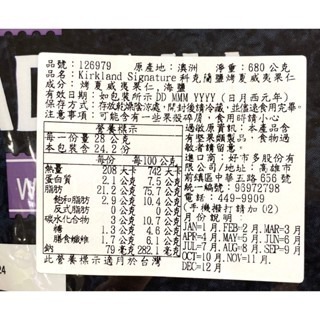 品號：126979 原產地：澳洲 淨重：680 公克
品名：Kirkland Signature 科克蘭鹽烤夏威夷果仁
成分：烤夏威夷果仁, 海鹽
有效日期：如包裝所示DD MMM YYYY (日月西元年)
保存方式：存放乾燥陰涼處, 開封後請冷藏, 並儘速食用完畢。
注意事項：可能含有一些果殼碎屑，食用時請小心
營養標示
每一份量 28 公克
本包裝含 24 份
每份 每100公克
熱量 208 大卡 742 大卡
蛋白質 2.1 公克 7.5 公克
脂肪 21.2 公克 75.7 公克
飽和脂肪 2.9 公克 10.4 公克
反式脂肪 0 公克 0 公克
碳水化合物 3.7 公克 13.2 公克
糖 1.3 公克 4.6 公克
膳食纖維 1.7 公克 6.1 公克
鈉 79 毫克 282.1 毫克
此營養標示適用於台灣
過敏原資訊：本產品含
有堅果類製品，食物過
敏者請留意。
進口商：好市多股份有
限公司 地址：高雄市
前鎮區中華五路 656 號
統一編號：96972798
電話：449-9909
(手機撥打請加 02)
月份說明：
JAN=1月,FEB=2月,MAR=3月
APR=4月,MAY=5月,JUN=6月
JUL=7月,AUG=8月,SEP=9月
OCT=10月,NOV=11月,
DEC=12月